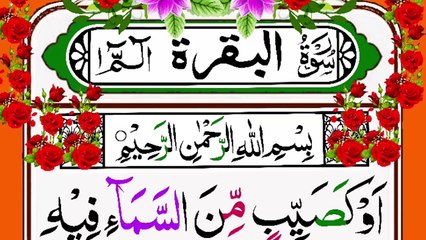 سُوْرَةُ البقرة الٓمّٓ ١
بِسْمِ اللّٰهِ الرَّحْمٰنِ الرَّحِيْمِ
اَوْ كَصَيِّبٍ مِّنَ السَّمَآءِ فِيْهِ